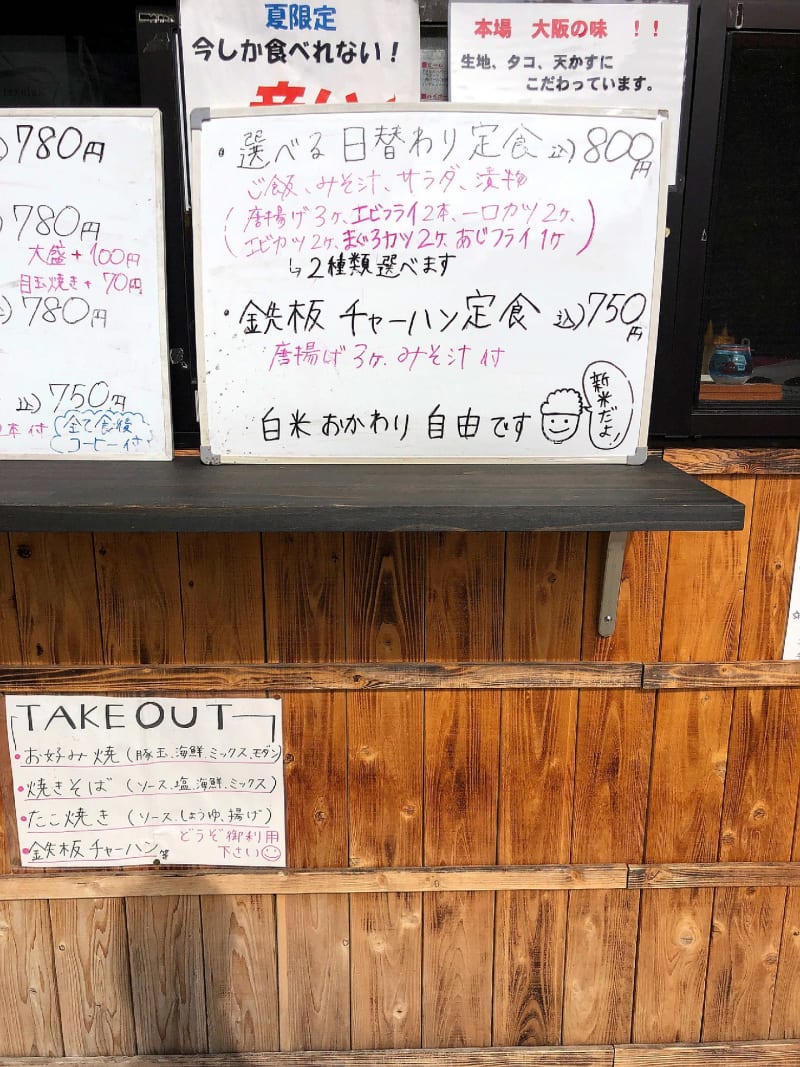 夏限定
今しか食べれない！
辛い
本場 大阪の味 ！！
生地、タコ、天かすに
こだわっています。
780円
780円
大盛+100円
目玉焼き+70円
780円
込) 750円
本付
全て食後
コーヒー付
・選べる 日替わり定食 込)800円
ご飯、みそ汁、サラダ、漬物
(唐揚げ3ヶ、エビフライ2本、一口カツ2ヶ、
エビカツ2ヶ、まぐろカツ2ヶ、あじフライ1ヶ)
↳2種類選べます
・鉄板 チャーハン定食 込)750円
唐揚げ3ヶ、みそ汁付
白米おかわり自由です
新米だよ!
TAKEOUT
・お好み焼(豚玉、海鮮、ミックス、モダン)
・焼きそば(ソース、塩、海鮮、ミックス)
・たこ焼き(ソース、しょうゆ、揚げ)
・鉄板チャーハン等
どうぞ御利用
下さい